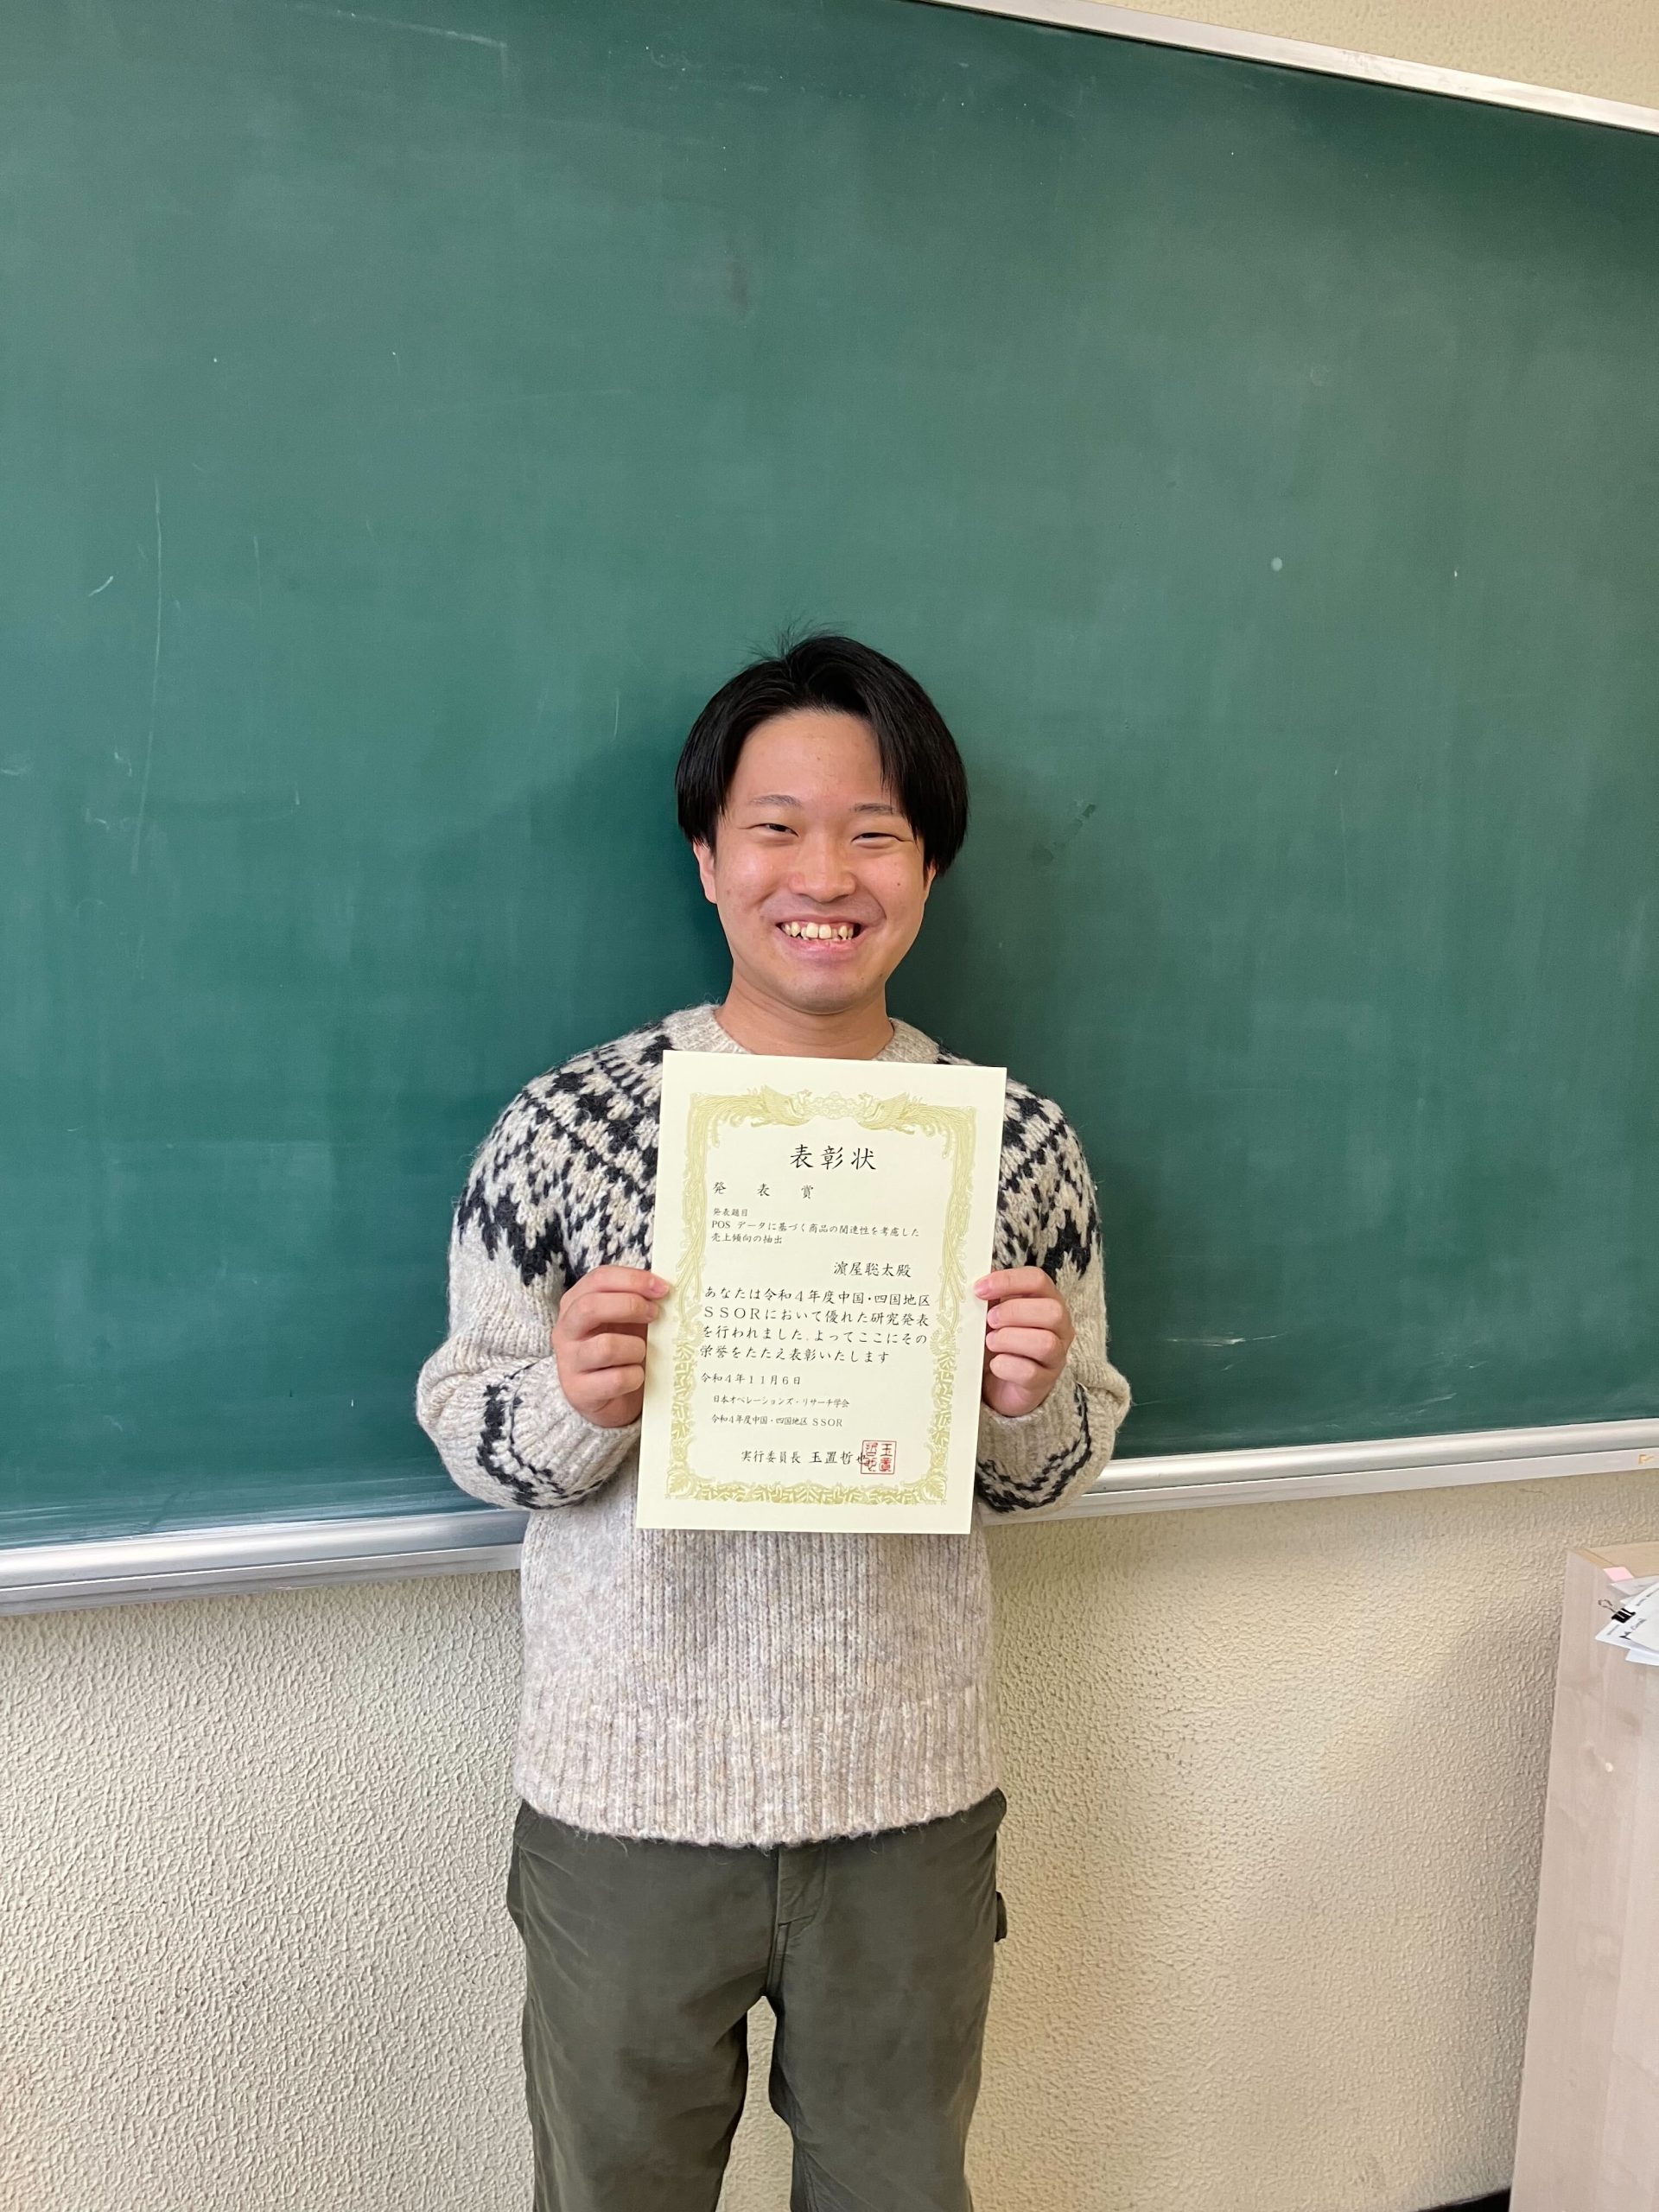 表彰状
発表賞
発表題目
POS データに基づく商品の関連性を考慮した
売上傾向の抽出
濵屋聡太殿
あなたは令和4年度中国・四国地区
SSORにおいて優れた研究発表
を行われました.よってここにその
栄誉をたたえ表彰いたします
令和4年11月6日
日本オペレーションズ・リサーチ学会
令和4年度中国・四国地区 SSOR
実行委員長 玉置哲也